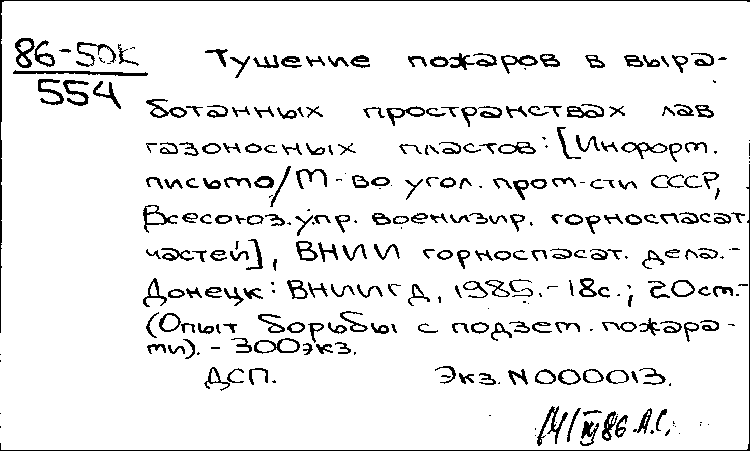 86-50К
554
Тушение пожаров в выра-
ботанных пространствах лав
газоносных пластов: [Информ.
письмо/М-во угол. пром-сти СССР,
Всесоюз. упр. военизир. горноспасат.
частей], ВНИИ горноспасат. дела.-
Донецк: ВНИИГД, 1985.-18с.; 20см.-
(Опыт борьбы с подзем. пожара-
ми).-300экз.
ДСП. Экз. N000013.
86 А.С.